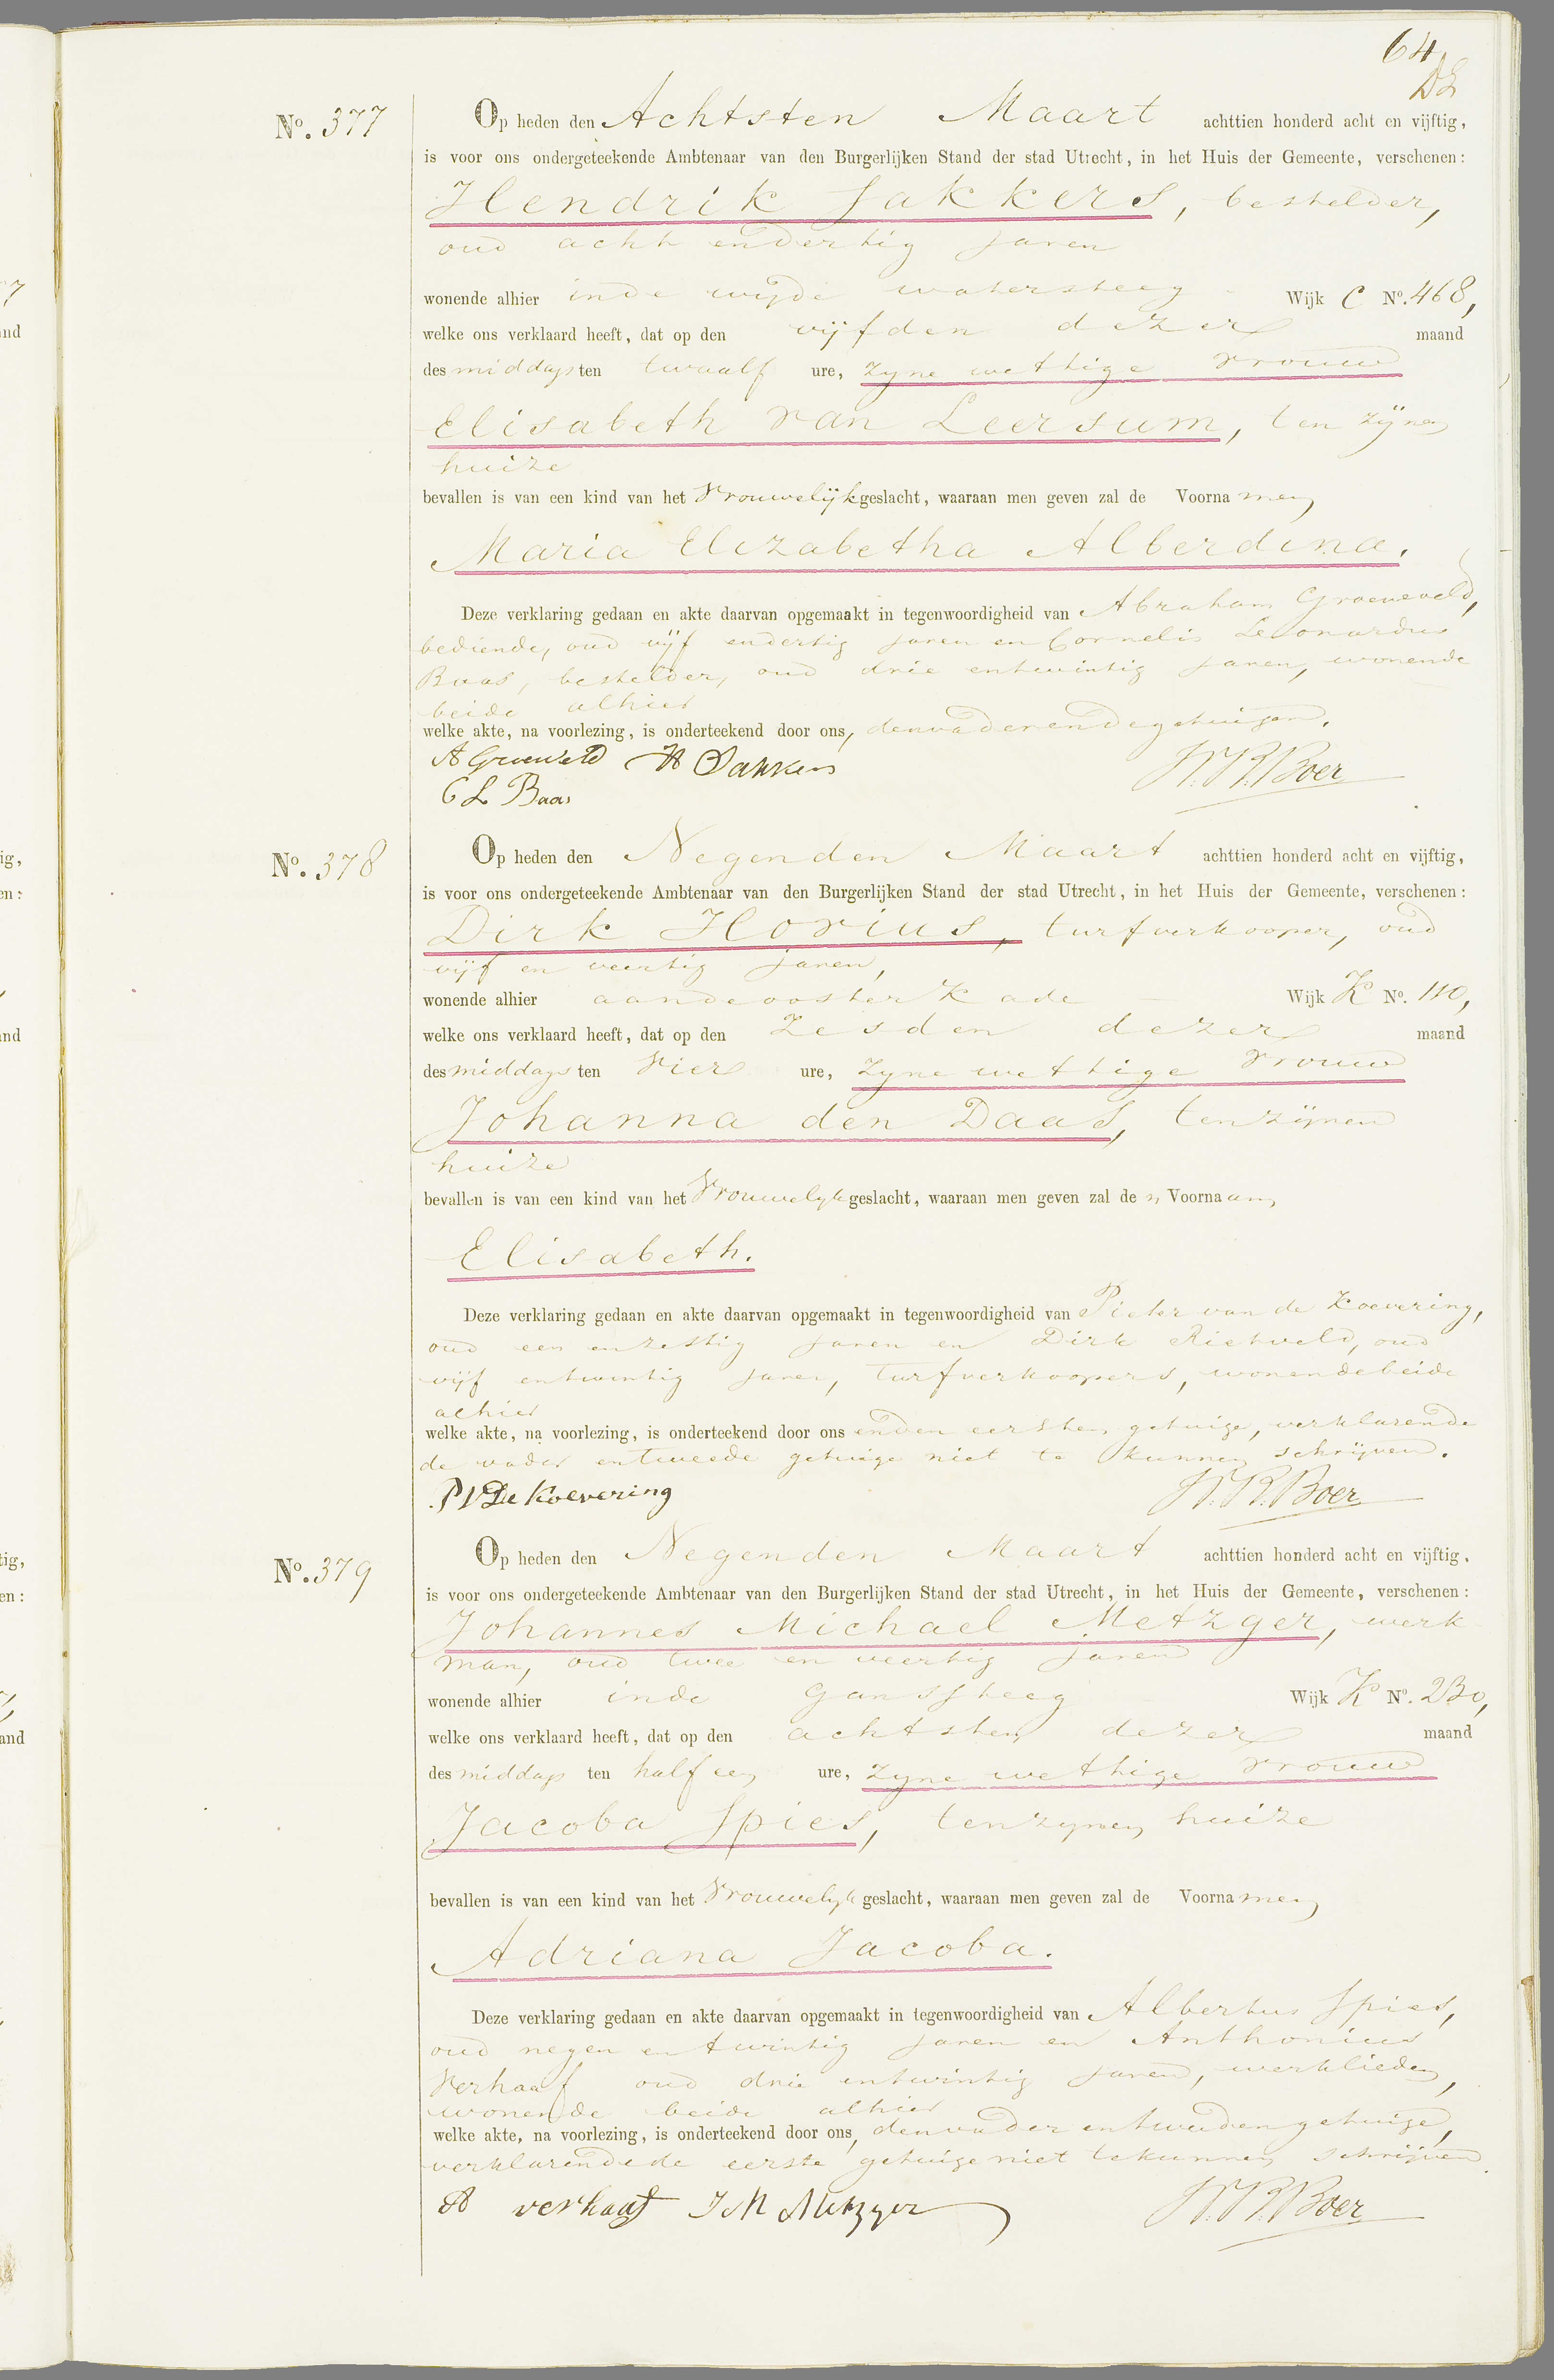 64
No. 377
Op heden den Achtsten Maart achttien honderd acht en vijftig,
is voor ons ondergeteekende Ambtenaar van den Burgerlijken Stand der stad Utrecht, in het Huis der Gemeente, verschenen:
Hendrik Sakkers, besteller,
oud acht en dertig jaren
wonende alhier in de wijde watersteeg Wijk C No. 468,
welke ons verklaard heeft, dat op den vijfden dezer maand
des middags ten twaalf ure, zyne wettige vrouw
Elisabeth van Leersum, ten zijnen
huize
bevallen is van een kind van het Vrouwelijk geslacht, waaraan men geven zal de Voornamen
Maria Elizabetha Alberdina.
Deze verklaring gedaan en akte daarvan opgemaakt in tegenwoordigheid van Abraham Groeneveld,
bediende, oud vijf en dertig jaren en Cornelis Leonardus
Baas, besteller, oud drie en twintig jaren, wonende
beide alhier
welke akte, na voorlezing, is onderteekend door ons, den vader en de getuigen.
A Groeneveld H Sakkers W.R. Boer
C L Baas
No. 378
Op heden den Negenden Maart achttien honderd acht en vijftig,
is voor ons ondergeteekende Ambtenaar van den Burgerlijken Stand der stad Utrecht, in het Huis der Gemeente, verschenen:
Dirk Horius, turfverkooper, oud
vijf en veertig jaren,
wonende alhier aan de oosterkade Wijk K No. 110,
welke ons verklaard heeft, dat op den Zesden dezer maand
des middags ten Vier ure, zyne wettige vrouw
Johanna den Daas, ten zijnen
huize
bevallen is van een kind van het Vrouwelyk geslacht, waaraan men geven zal den Voornaam
Elisabeth.
Deze verklaring gedaan en akte daarvan opgemaakt in tegenwoordigheid van Pieter van de Koevering,
oud een en zestig jaren en Dirk Rietveld, oud
vijf en twintig jaren, turfverkoopers, wonende beide
alhier
welke akte, na voorlezing, is onderteekend door ons en den eersten getuige, verklarende
de vader en tweede getuige niet te kunnen schrijven.
P VDe Koevering W.R. Boer
No. 379
Op heden den Negenden Maart achttien honderd acht en vijftig,
is voor ons ondergeteekende Ambtenaar van den Burgerlijken Stand der stad Utrecht, in het Huis der Gemeente, verschenen:
Johannes Michael Metzger, werk
man, oud twee en veertig jaren
wonende alhier in de Ganssteeg Wijk K No. 230,
welke ons verklaard heeft, dat op den achtsten dezer maand
des middags ten half een ure, zyne wettige vrouw
Jacoba Spies, ten zynen huize
bevallen is van een kind van het Vrouwelyk geslacht, waaraan men geven zal de Voornamen
Adriana Jacoba.
Deze verklaring gedaan en akte daarvan opgemaakt in tegenwoordigheid van Albertus Spies,
oud negen en twintig jaren en Anthonius
Verhaaf oud drie en twintig jaren, werklieden,
wonende beide alhier
welke akte, na voorlezing, is onderteekend door ons, den vader en tweeden getuige,
verklarende de eerste getuige niet te kunnen schrijven.
A verhaaf J M Metzger W.R. Boer